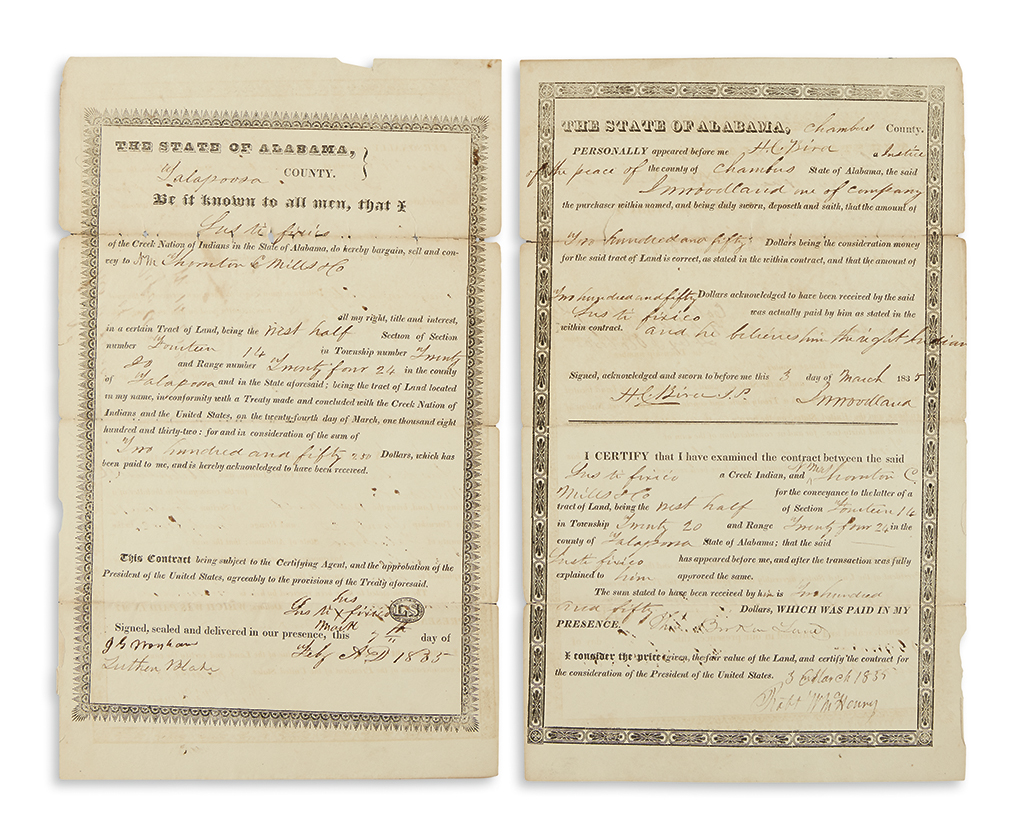 THE STATE OF ALABAMA,
Talapoosa COUNTY.
Be it known to all men, that I
Sus te fixico
of the Creek Nation of Indians in the State of Alabama, do hereby bargain, sell and con-
vey to Wm Thornton C Mills & Co
all my right, title and interest,
in a certain Tract of Land, being the West half Section of Section
number Fourteen 14 in Township number Twenty
20 and Range number Twenty four 24 in the county
of Talapoosa and in the State aforesaid; being the tract of Land located
in my name, in conformity with a Treaty made and concluded with the Creek Nation of
Indians and the United States, on the twenty-fourth day of March, one thousand eight
hundred and thirty-two: for and in consideration of the sum of
Two hundred and fifty 250 Dollars, which has
been paid to me, and is hereby acknowledged to have been received.
This Contract being subject to the Certifying Agent, and the approbation of the
President of the United States, agreeably to the provisions of the Treaty aforesaid.
his
Sus te x fixico LS
Mark
Signed, sealed and delivered in our presence, this 7th day of
Feby A D 1835
J G Worsham
Luther Blake
THE STATE OF ALABAMA, Chambers County.
PERSONALLY appeared before me H C Bird a Justice
of the peace of the county of Chambers State of Alabama, the said
J Woodland one of company
the purchaser within named, and being duly sworn, deposeth and saith, that the amount of
Two hundred and fifty Dollars being the consideration money
for the said tract of Land is correct, as stated in the within contract, and that the amount of
Two hundred and fifty Dollars acknowledged to have been received by the said
Sus te fixico was actually paid by him as stated in the
within contract. and he believes him the right Indian
Signed, acknowledged and sworn to before me this 3 day of March 1835
H C Bird J.P. J Woodland
I CERTIFY that I have examined the contract between the said
Sus te fixico a Creek Indian, and Wm Thornton C.
Mills & Co for the conveyance to the latter of a
tract of Land, being the West half of Section Fourteen 14
in Township Twenty 20 and Range Twenty four 24 in the
county of Talapoosa State of Alabama; that the said
Sus te fixico has appeared before me, and after the transaction was fully
explained to him approved the same.
The sum stated to have been received by him is Two hundred
and fifty Dollars, WHICH WAS PAID IN MY
PRESENCE.
I consider the price given, the fair value of the Land, and certify the contract for
the consideration of the President of the United States. 3 March 1835
Robt W McHenry